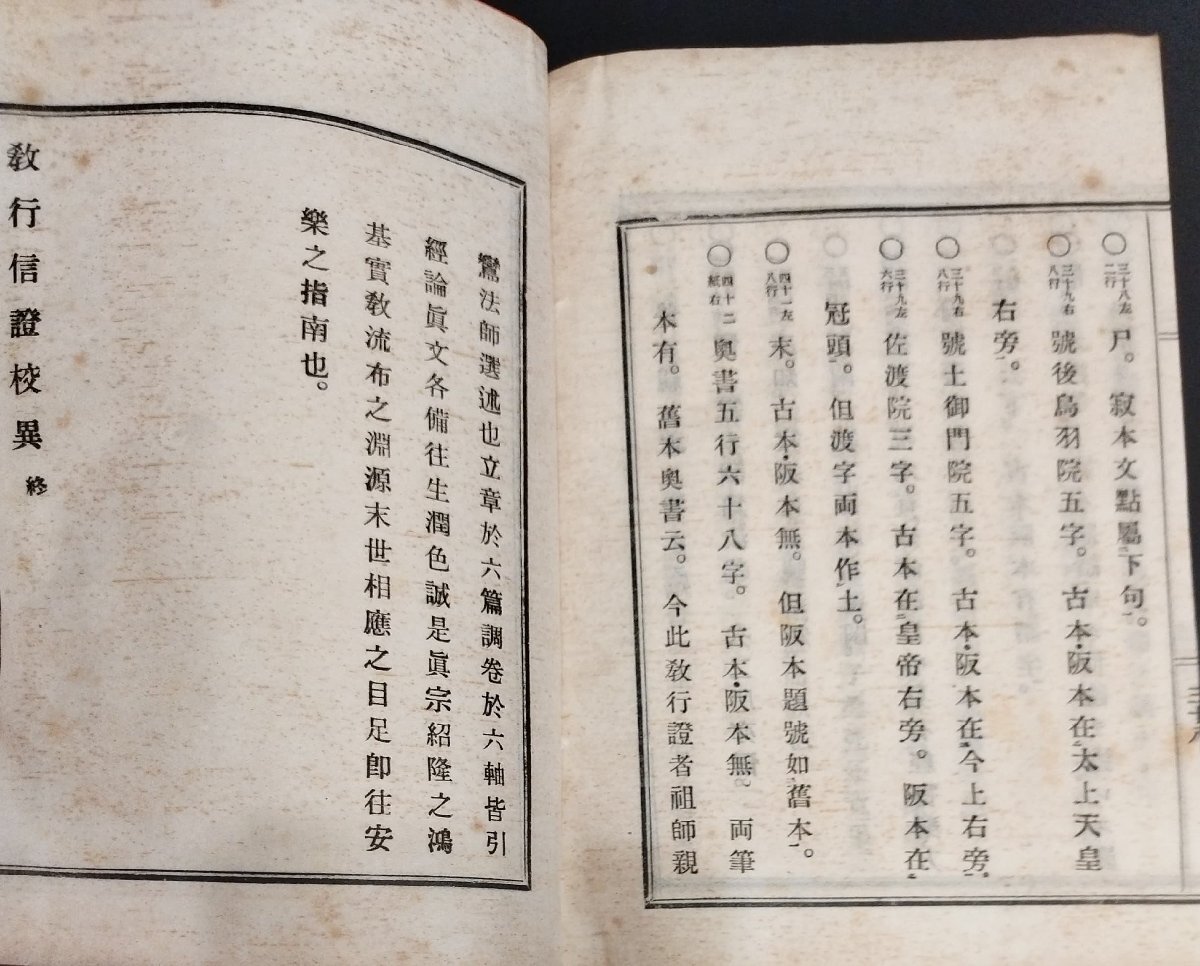 ○三十八左二行尸。寂本文點屬下句。
○三十九右八行號後鳥羽院五字。古本・阪本在太上天皇
右旁。
○三十九右八行號土御門院五字。古本・阪本在今上右旁。
○三十九左六行佐渡院三字。古本在皇帝右旁。阪本在
冠頭。但渡字両本作土。
○四十一左八行末。古本・阪本無。但阪本題號如舊本。
○四十二紙右奥書五行六十八字。古本・阪本無。両筆
本有。舊本奥書云。今此敎行證者祖師親
鸞法師選述也立章於六篇調卷於六軸皆引
經論眞文各備往生潤色誠是眞宗紹隆之鴻
基實敎流布之淵源末世相應之目足卽往安
樂之指南也。
敎行信證校異 終